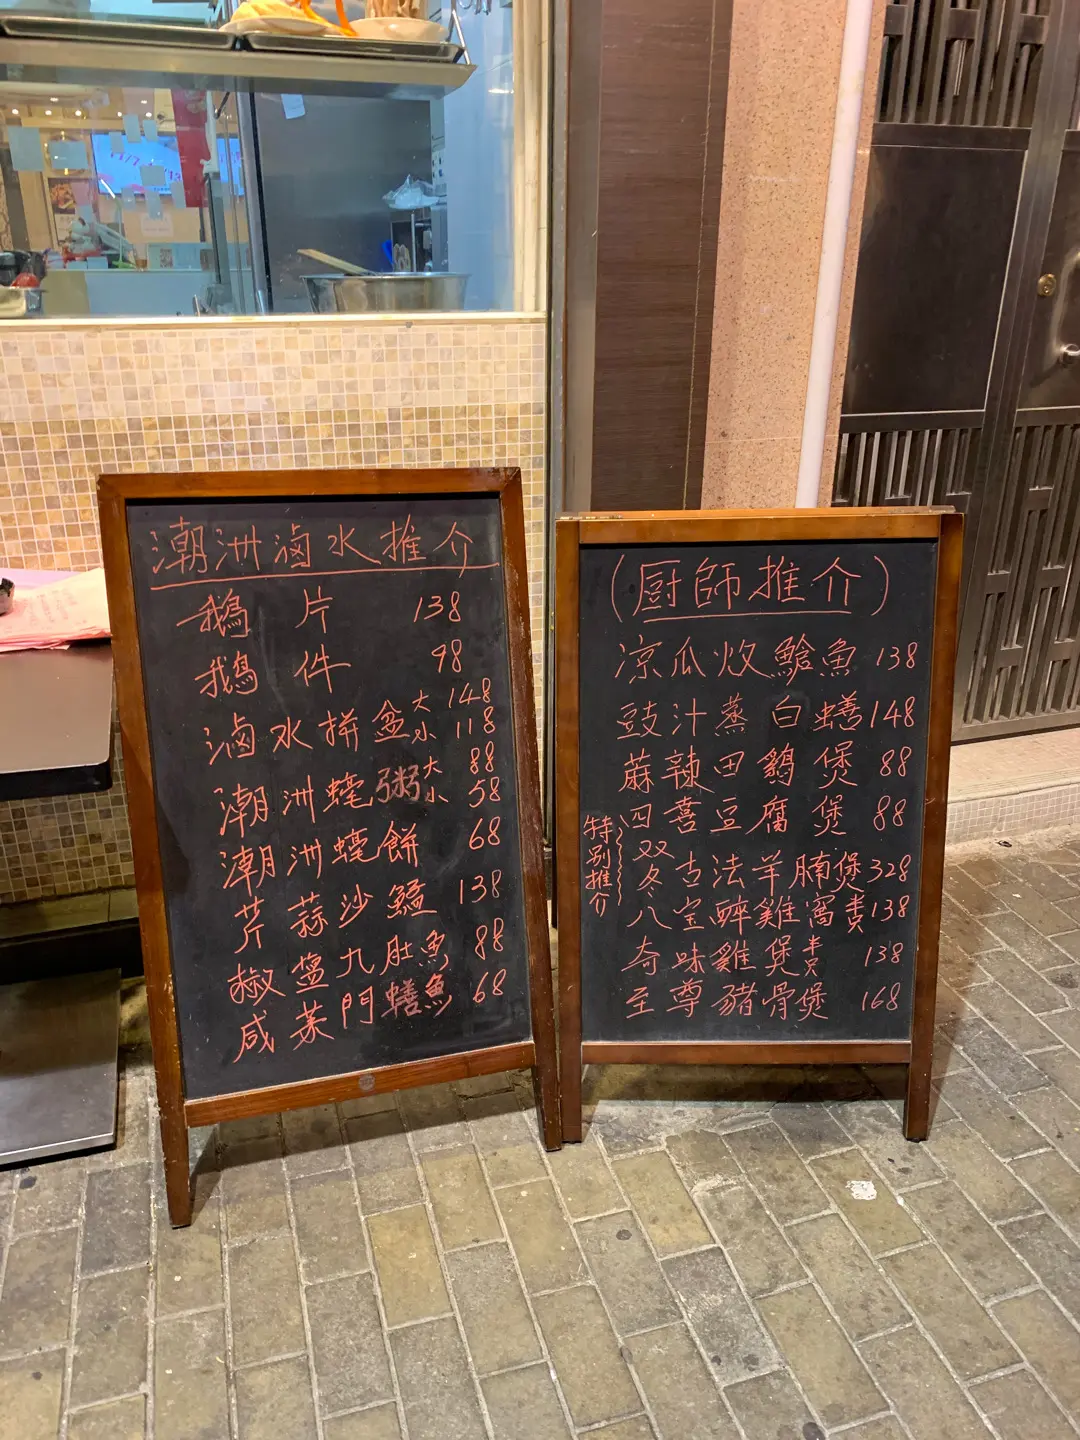 潮洲滷水推介
鵝片 138
鵝件 98
滷水拼盆 大 148
小 118
潮洲蠔粥 大 88
小 58
潮洲蠔餅 68
芹蒜沙鯭 138
椒盬九肚魚 88
咸菜門鱔魚 68
(厨師推介)
涼瓜炆鯰魚 138
豉汁蒸白鱔 148
蔴辣田鷄煲 88
四喜豆腐煲 88
特別推介
双冬古法羊腩煲 328
八宝醉雞窩 138
奇味雞煲 138
至尊豬骨煲 168